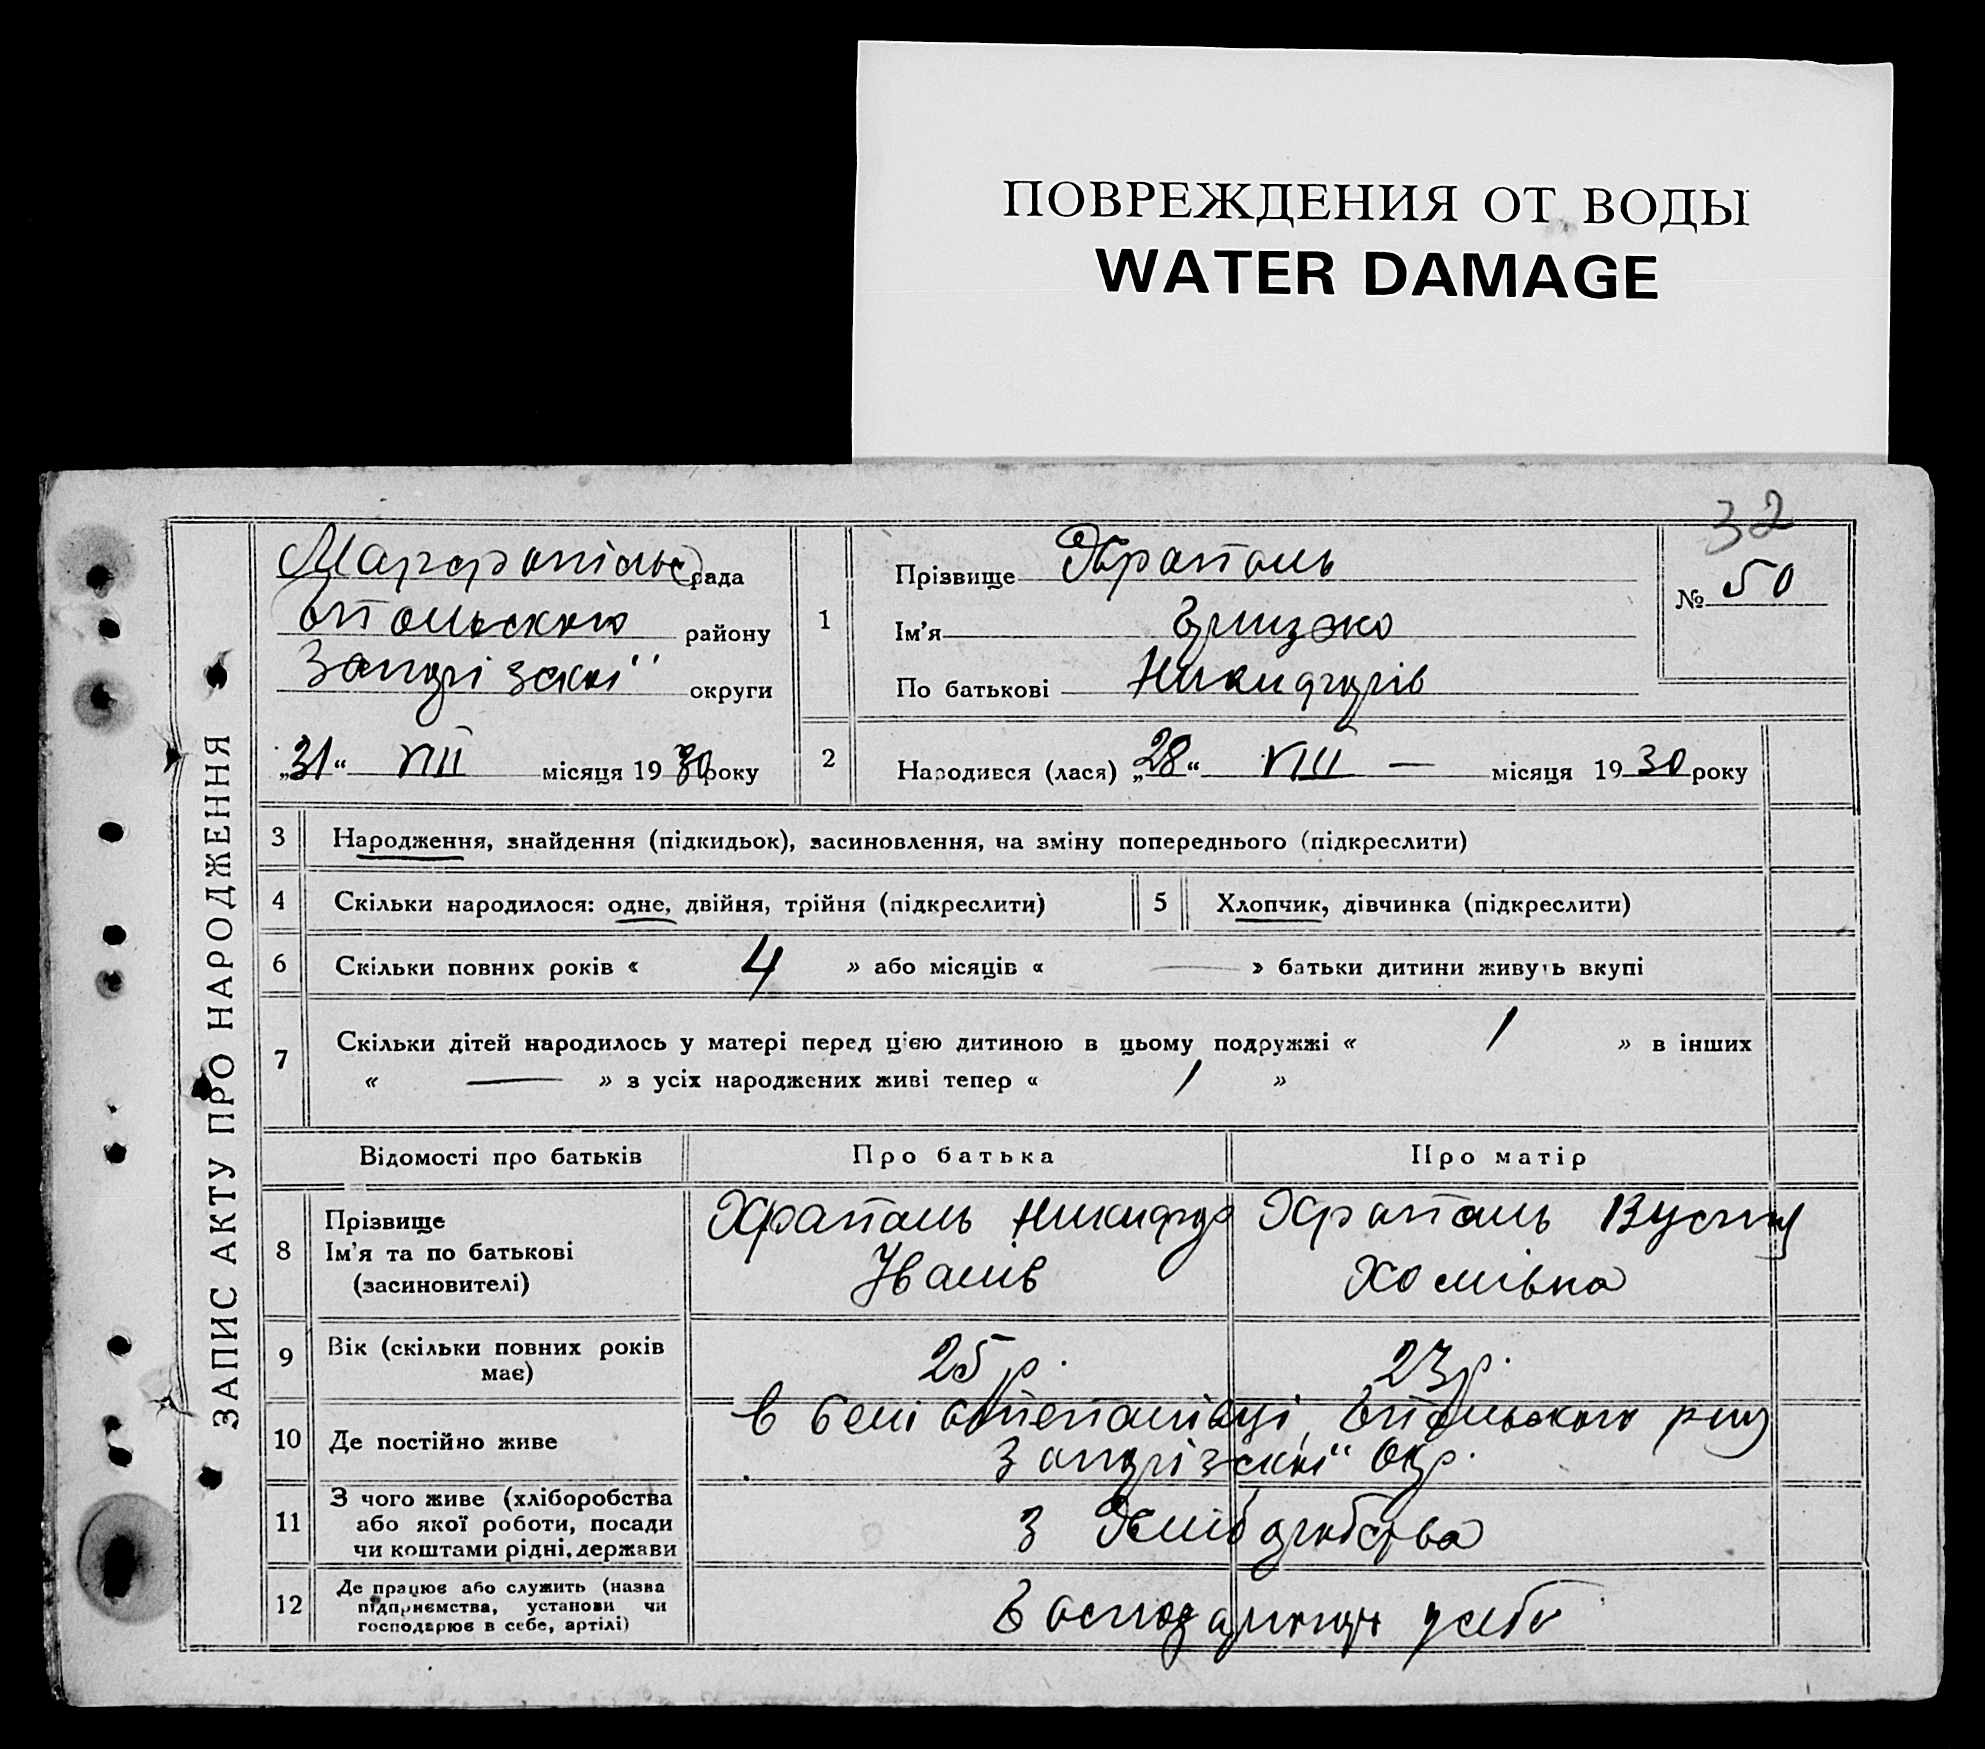 ПОВРЕЖДЕНИЯ ОТ ВОДЫ
WATER DAMAGE
32
ЗАПИС АКТУ ПРО НАРОДЖЕННЯ
рада
району
округи
„31“ VIII місяця 1930 року
1
Прізвище Храпаль
Ім’я Грицько
По батькові Никифорів
№ 50
2 Народився (лася) „28“ VIII — місяця 1930 року
3 Народження, знайдення (підкидьок), засиновлення, на зміну попереднього (підкреслити)
4 Скільки народилося: одне, двійня, трійня (підкреслити)
5 Хлопчик, дівчинка (підкреслити)
6 Скільки повних років « 4 » або місяців « — » батьки дитини живуть вкупі
7 Скільки дітей народилось у матері перед цією дитиною в цьому подружжі « 1 » в інших
« — » з усіх народжених живі тепер « 1 »
Відомості про батьків Про батька Про матір
8 Прізвище
Ім’я та по батькові
(засиновителі)
Храпаль Никифор
Іванів
Храпаль
Хомівна
9 Вік (скільки повних років
має)
25 р. 23 р.
10 Де постійно живе
в селі Степанівці
окр.
11 З чого живе (хліборобства
або якої роботи, посади
чи коштами рідні, держави
З хліборобства
12 Де працює або служить (назва
підприємства, установи чи
господарює в себе, артілі)
у себе